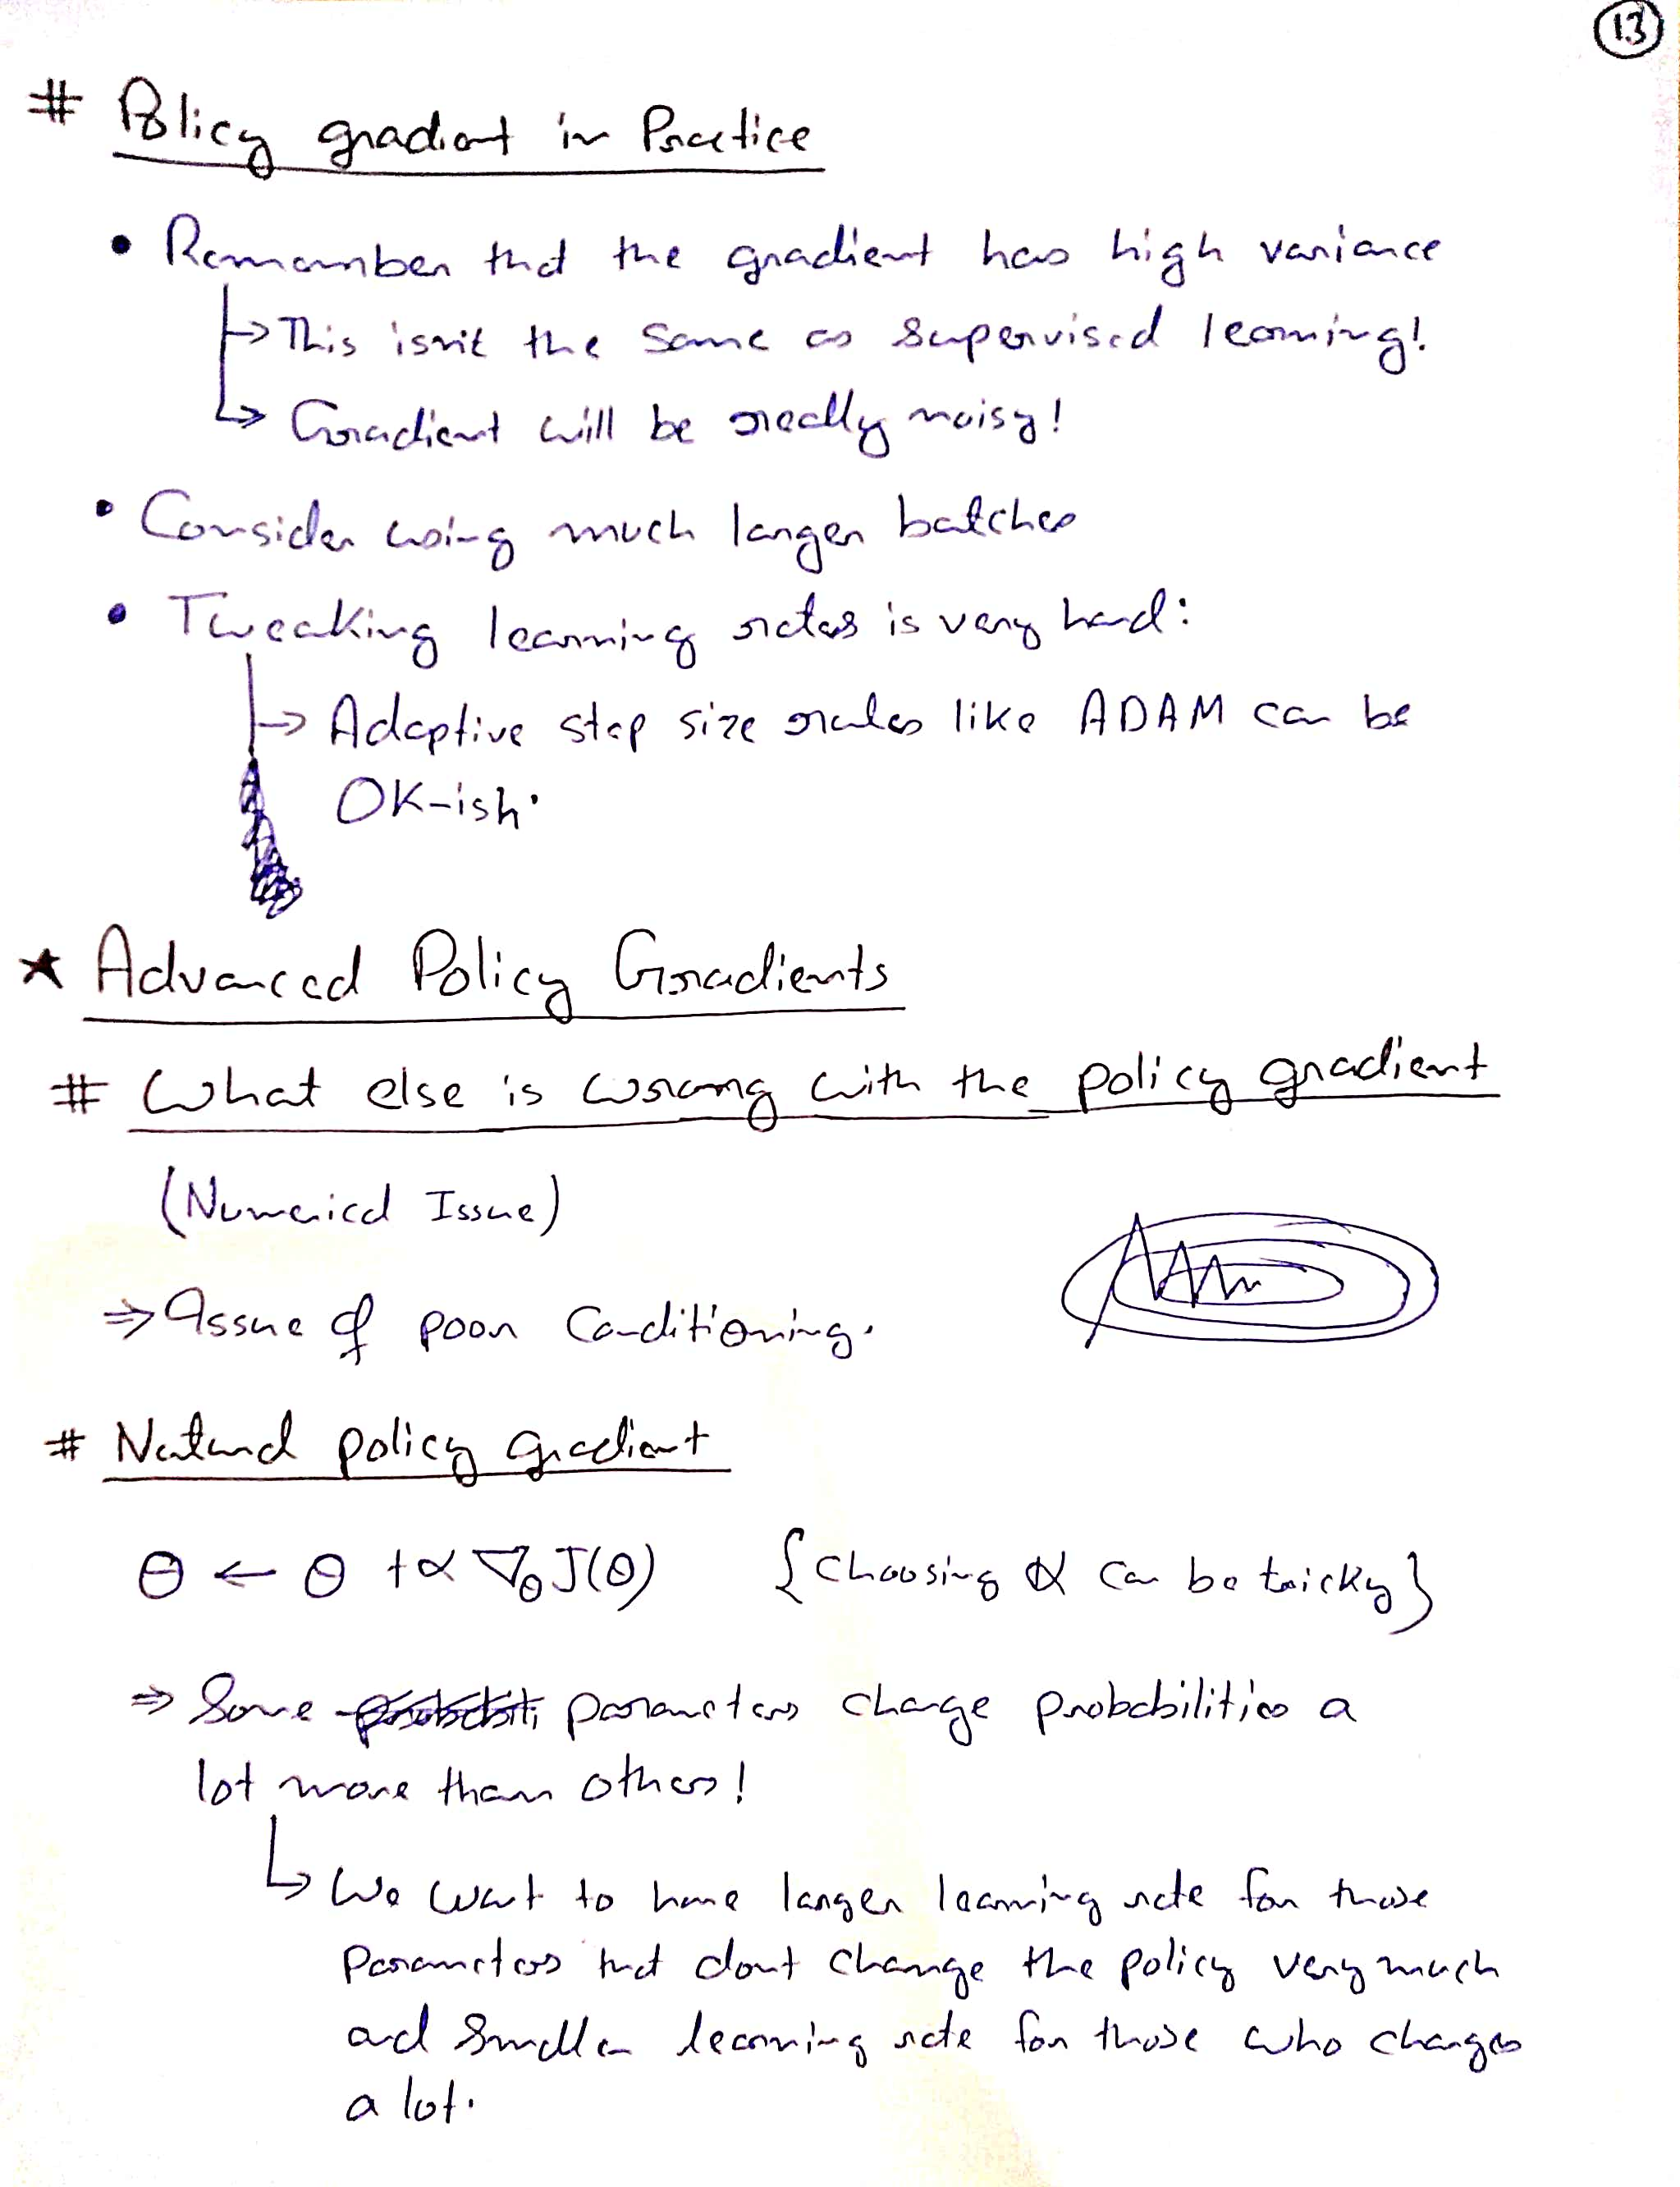 13
# Policy gradient in Practice
• Remember that the gradient has high variance
↳ This isn't the same as supervised learning!
↳ Gradient will be really noisy!
• Consider using much larger batches
• Tweaking learning rates is very hard:
↳ Adaptive step size rules like ADAM can be
OK-ish.
★ Advanced Policy Gradients
# What else is wrong with the policy gradient
(Numerical Issue)
⇒ Issue of poor Conditioning.
# Natural policy gradient
θ ← θ + α ∇θ J(θ) {Choosing α can be tricky}
⇒ Some parameters change probabilities a
lot more than others!
↳ We want to have larger learning rate for those
parameters that dont change the policy very much
and smaller learning rate for those who changes
a lot.